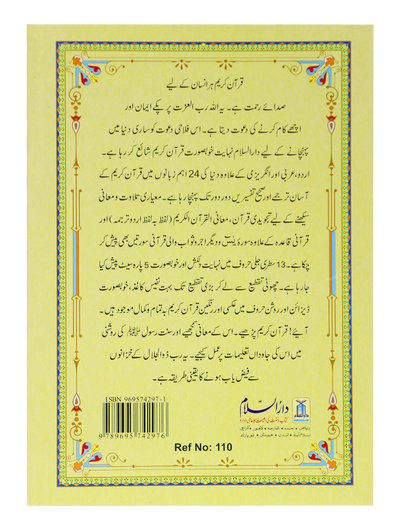 قرآن کریم ہر انسان کے لیے
صدائے رحمت ہے۔ یہ اللہ رب العزت پر پکے ایمان اور
اچھے کام کرنے کی دعوت دیتا ہے۔ اس فلاحی دعوت کو ساری دنیا میں
پہنچانے کے لیے دارالسلام نہایت خوبصورت قرآن کریم شائع کر رہا ہے۔
اردو، عربی اور انگریزی کے علاوہ دنیا کی 24 اہم زبانوں میں قرآن کریم کے
آسان ترجمے اور صحیح تفسیریں دور دور تک پہنچا رہا ہے۔ معیاری تلاوت و معانی
سیکھنے کے لیے تجویدی قرآن، معانی القرآن الکریم (لفظ بہ لفظ اردو ترجمہ) اور
قرآنی قاعدہ کے علاوہ سورۂ یٰسٓ و دیگر اجر و ثواب والی قرآنی سورتیں بھی پیش کر
چکا ہے۔ 13 سطری جلی حروف میں نہایت دلکش اور خوبصورت 5 پارہ سیٹ پیش کیا
جا رہا ہے۔ چھوٹی تقطیع سے لے کر بڑی تقطیع تک بہت نفیس کاغذ، خوبصورت
ڈیزائن اور روشن حروف میں عکسی اور رنگین قرآن کریم بہ تمام و کمال موجود ہیں۔
آیئے! قرآن کریم پڑھیے۔ اس کے معانی سمجھیے اور سنت رسول ﷺ کی روشنی
میں اس کی جاوداں تعلیمات پر عمل کیجیے۔ یہ رب ذوالجلال کے خزانوں
سے فیض یاب ہونے کا یقینی طریقہ ہے۔
ISBN 969574297-1
9 789695 742976
دارالسلام
Ref No: 110